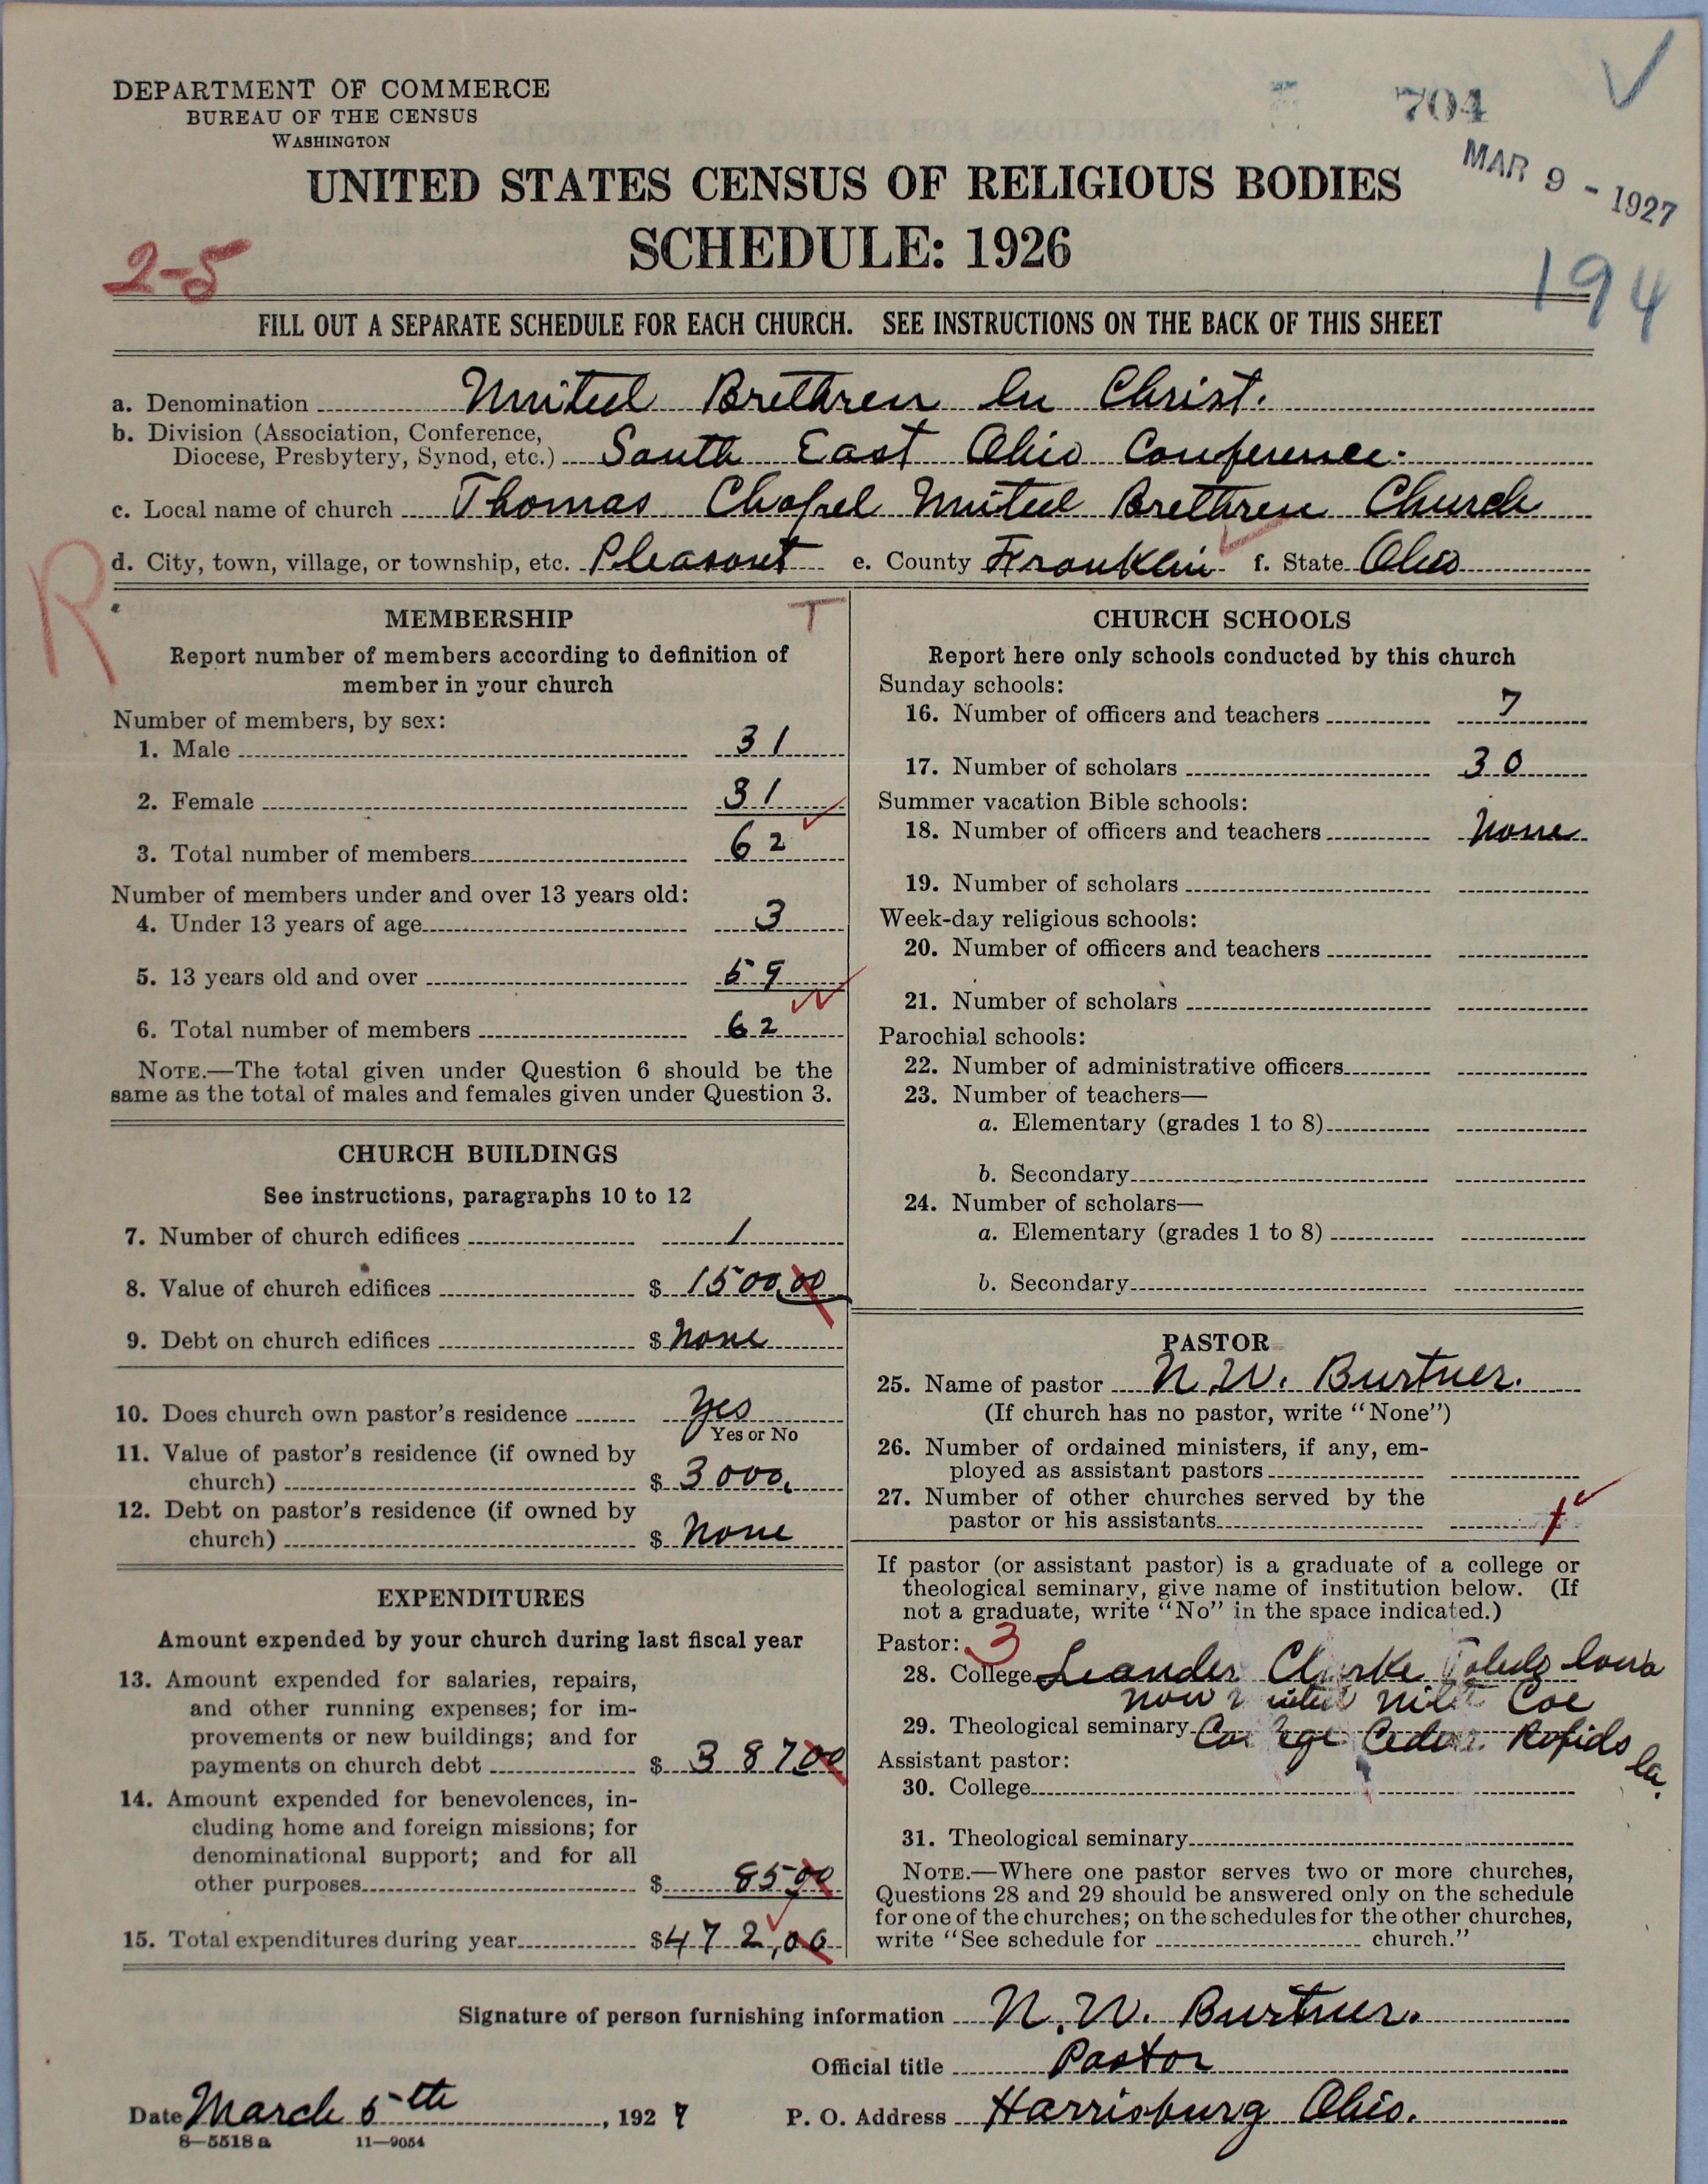 DEPARTMENT OF COMMERCE
BUREAU OF THE CENSUS
WASHINGTON
704
MAR 9 - 1927
UNITED STATES CENSUS OF RELIGIOUS BODIES
SCHEDULE: 1926
2-5
194
FILL OUT A SEPARATE SCHEDULE FOR EACH CHURCH. SEE INSTRUCTIONS ON THE BACK OF THIS SHEET
a. Denomination United Brethren In Christ.
b. Division (Association, Conference,
Diocese, Presbytery, Synod, etc.) South East Ohio Conference.
c. Local name of church Thomas Chapel United Brethren Church
d. City, town, village, or township, etc. Pleasant e. County Franklin f. State Ohio
R
MEMBERSHIP T
Report number of members according to definition of
member in your church
Number of members, by sex:
1. Male 31
2. Female 31
3. Total number of members 62
Number of members under and over 13 years old:
4. Under 13 years of age 3
5. 13 years old and over 59
6. Total number of members 62
NOTE.—The total given under Question 6 should be the
same as the total of males and females given under Question 3.
CHURCH BUILDINGS
See instructions, paragraphs 10 to 12
7. Number of church edifices 1
8. Value of church edifices $ 1500.00
9. Debt on church edifices $ none
10. Does church own pastor's residence Yes
Yes or No
11. Value of pastor's residence (if owned by
church) $ 3000.
12. Debt on pastor's residence (if owned by
church) $ none
EXPENDITURES
Amount expended by your church during last fiscal year
13. Amount expended for salaries, repairs,
and other running expenses; for im-
provements or new buildings; and for
payments on church debt $ 387 00
14. Amount expended for benevolences, in-
cluding home and foreign missions; for
denominational support; and for all
other purposes $ 85 00
15. Total expenditures during year $ 472,00
CHURCH SCHOOLS
Report here only schools conducted by this church
Sunday schools:
16. Number of officers and teachers 7
17. Number of scholars 30
Summer vacation Bible schools:
18. Number of officers and teachers None
19. Number of scholars
Week-day religious schools:
20. Number of officers and teachers
21. Number of scholars
Parochial schools:
22. Number of administrative officers
23. Number of teachers—
a. Elementary (grades 1 to 8)
b. Secondary
24. Number of scholars—
a. Elementary (grades 1 to 8)
b. Secondary
PASTOR
25. Name of pastor N. W. Burtner.
(If church has no pastor, write "None")
26. Number of ordained ministers, if any, em-
ployed as assistant pastors
27. Number of other churches served by the
pastor or his assistants
If pastor (or assistant pastor) is a graduate of a college or
theological seminary, give name of institution below. (If
not a graduate, write "No" in the space indicated.)
Pastor: 3
28. College Leander Clarke Toledo Iowa
now Coe
29. Theological seminary College Cedar Rapids Ia.
Assistant pastor:
30. College
31. Theological seminary
NOTE.—Where one pastor serves two or more churches,
Questions 28 and 29 should be answered only on the schedule
for one of the churches; on the schedules for the other churches,
write "See schedule for church."
Signature of person furnishing information N. W. Burtner.
Official title Pastor
Date March 5th, 1927 P. O. Address Harrisburg Ohio.
8—5518 a 11—9054